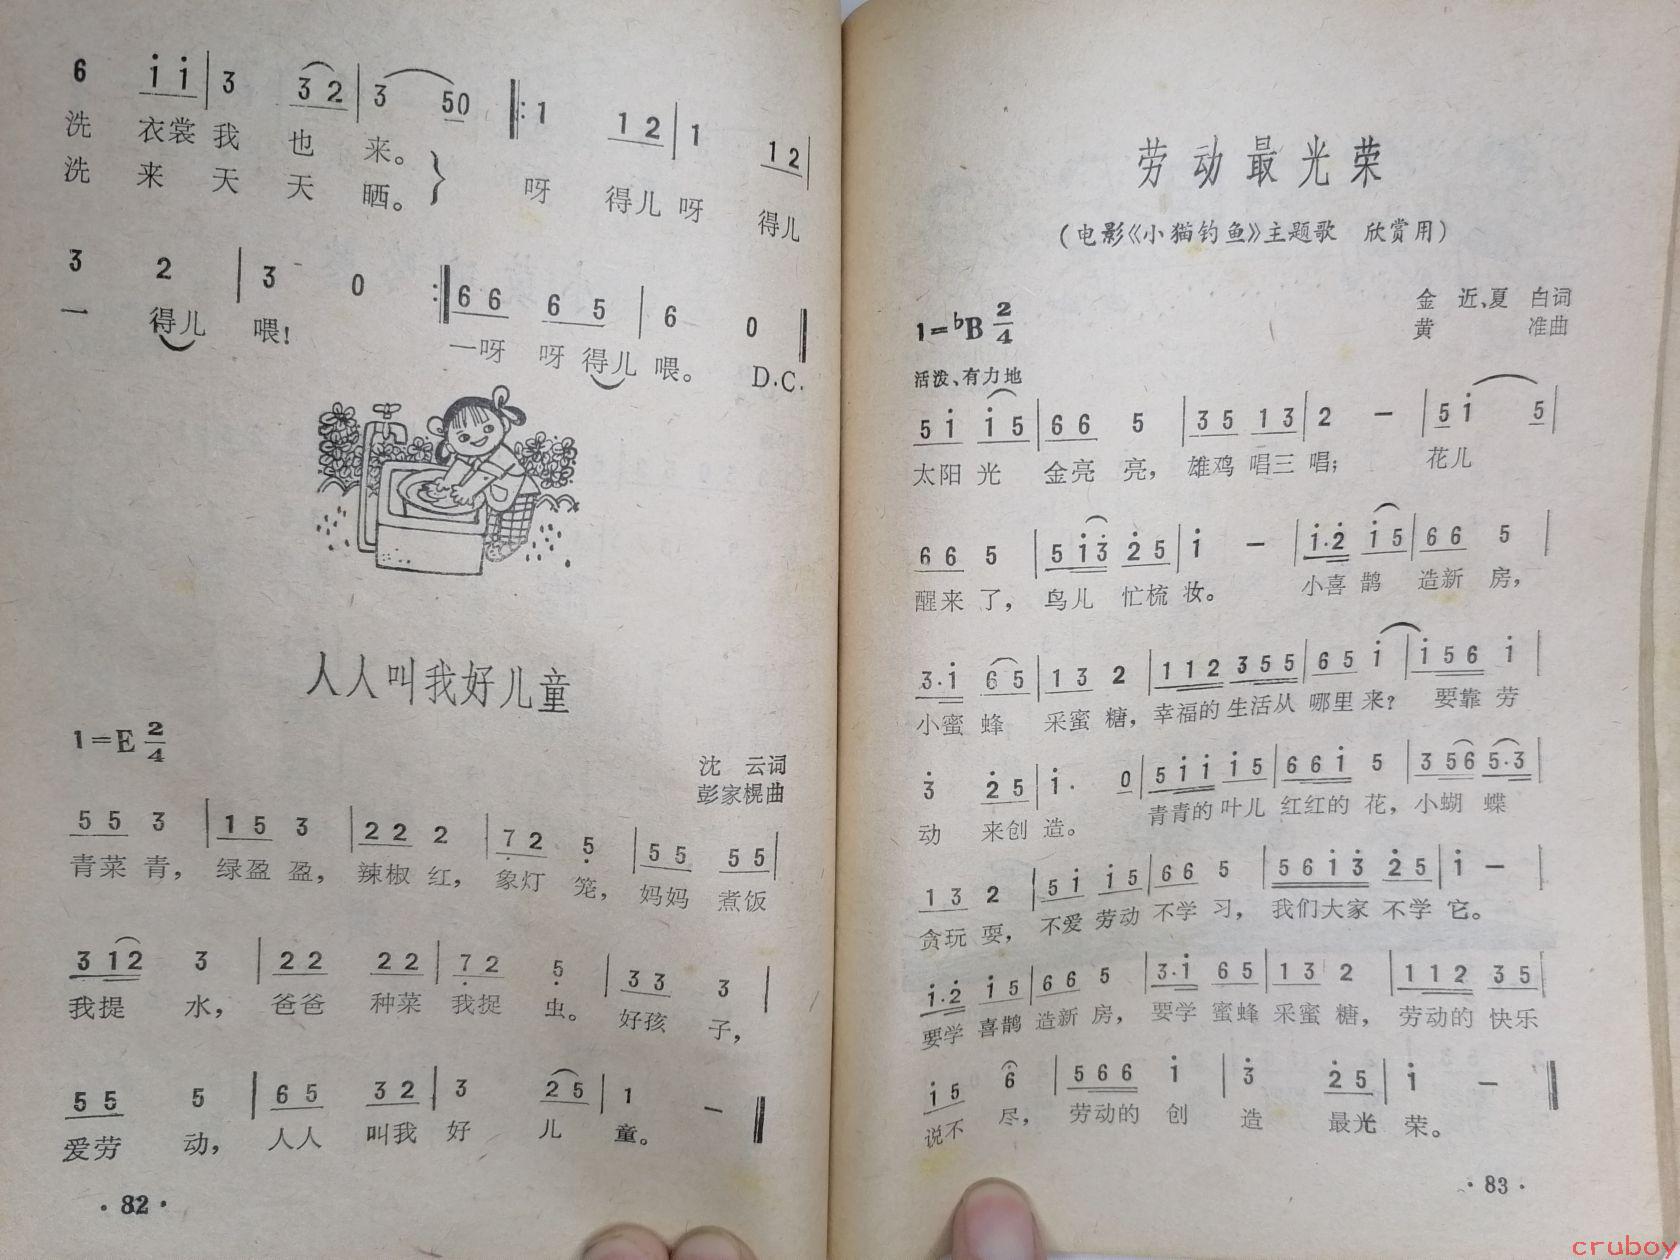 6 i i | 3 3 2 | 3 50 ‖: 1 1 2 | 1 1 2 |
洗 衣裳 我 也 来。
洗 来 天 天 晒。 } 呀 得儿 呀 得儿
3 2 | 3 0 :‖ 6 6 6 5 | 6 0 ‖
一 得儿 喂! 一呀 呀 得儿 喂。 D.C.
人人叫我好儿童
1=E 2/4
沈 云词
彭家榥曲
5 5 3 | 1 5 3 | 2 2 2 | 7 2 5 | 5 5 5 5 |
青菜 青, 绿盈 盈, 辣椒 红, 象灯 笼, 妈妈 煮饭
3 1 2 3 | 2 2 2 2 | 7 2 5 | 3 3 3 |
我提 水, 爸爸 种菜 我捉 虫。 好孩 子,
5 5 5 | 6 5 3 2 | 3 2 5 | 1 – ‖
爱劳 动, 人人 叫我 好 儿 童。
· 82 ·
劳动最光荣
(电影《小猫钓鱼》主题歌 欣赏用)
金 近、夏 白词
1=♭B 2/4
黄 准曲
活泼、有力地
5 i i 5 | 6 6 5 | 3 5 1 3 | 2 – | 5 i 5 |
太阳 光 金亮 亮, 雄鸡 唱三 唱; 花儿
6 6 5 | 5 i 3 2 5 | i – | i·2 i 5 | 6 6 5 |
醒来 了, 鸟儿 忙梳 妆。 小喜 鹊 造新 房,
3·i 6 5 | 1 3 2 | 1 1 2 3 5 5 | 6 5 i | i 5 6 i |
小蜜 蜂 采蜜 糖, 幸福的 生活从 哪里 来? 要靠 劳
3 2 5 | i· 0 | 5 i i i 5 | 6 6 i 5 | 3 5 6 5·3 |
动 来创 造。 青青的 叶儿 红红的 花, 小蝴 蝶
1 3 2 | 5 i i 5 | 6 6 5 | 5 6 i 3 2 5 | i – |
贪玩 耍, 不爱 劳动 不学 习, 我们大家 不学 它。
i·2 i 5 | 6 6 5 | 3·i 6 5 | 1 3 2 | 1 1 2 3 5 |
要学 喜鹊 造新 房, 要学 蜜蜂 采蜜 糖, 劳动的 快乐
i 5 6 | 5 6 6 i | 3 2 5 | i – ‖
说不 尽, 劳动的 创 造 最光 荣。
· 83 ·
cruboy